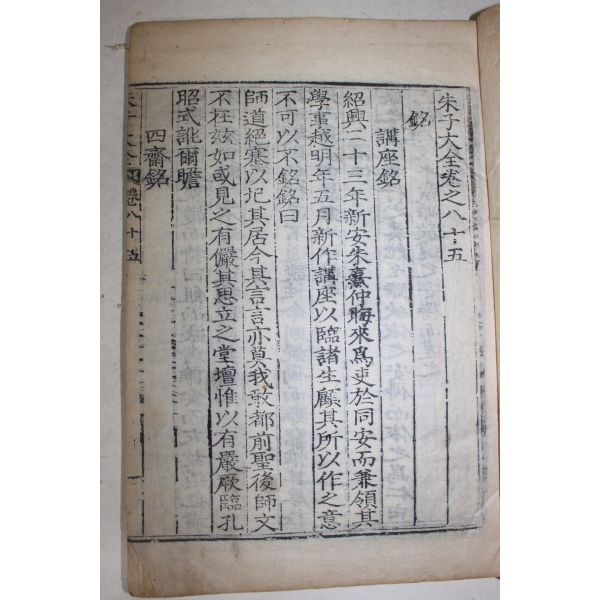 朱子大全卷之八十五
銘
講座銘
紹興二十三年新安朱熹仲晦來爲吏於同安而兼領其
學事越明年五月新作講座以臨諸生顧其所以作之意
不可以不銘銘曰
師道絕塞以圮其居今其言言亦莫我敢都前聖後師文
不在玆如或見之有儼其思立之堂壇惟以有嚴厥臨孔
昭式訛爾瞻
四齋銘
朱子大全 卷八十五